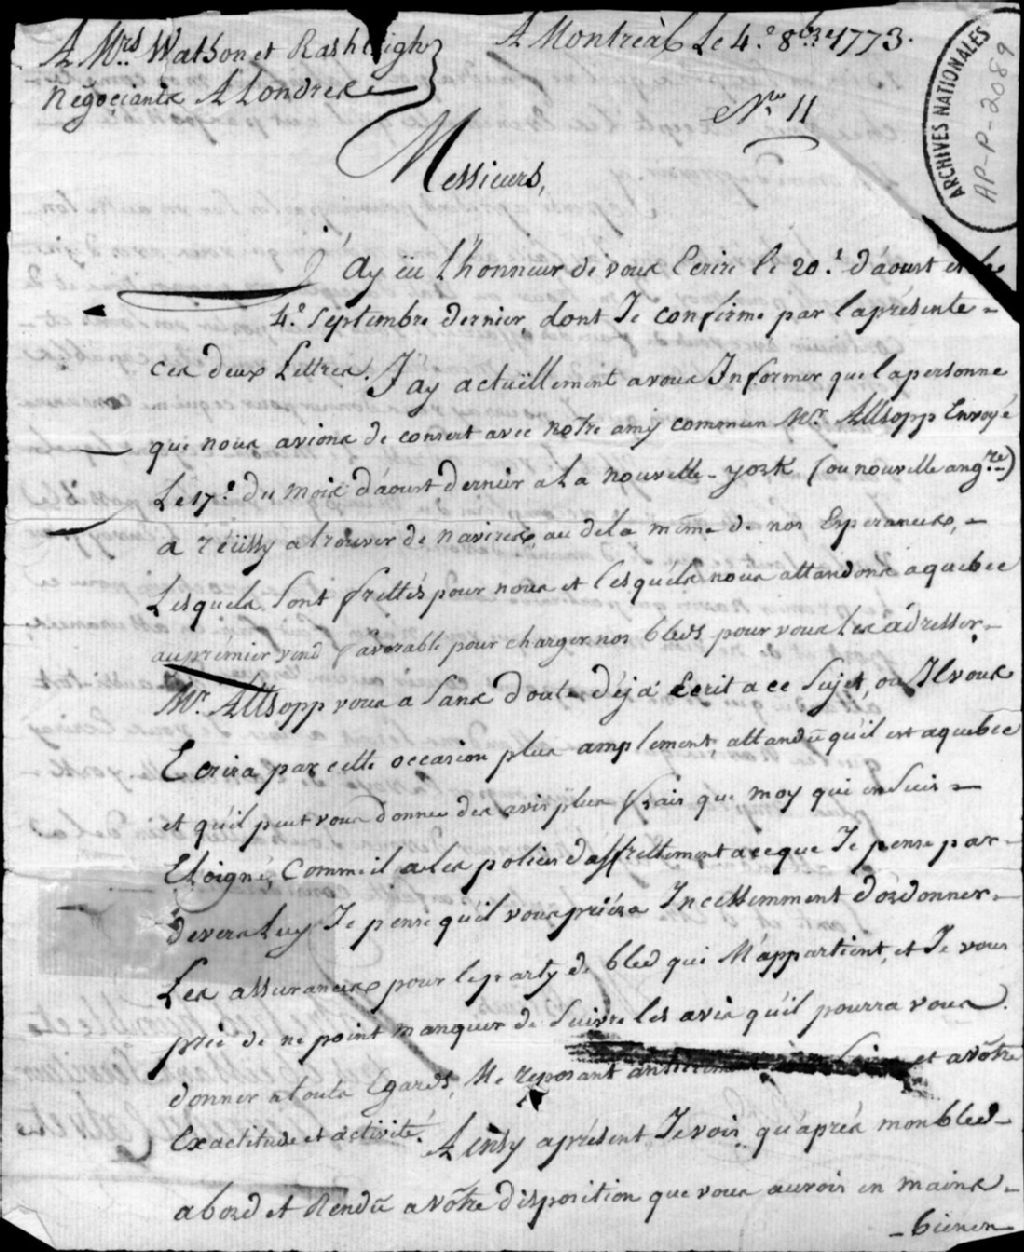 A Mrs Watson et Rashleigh
Negociants A Londres
A Montréal Le 4.e 8bre 1773.
ARCHIVES NATIONALES
AP-P-2089
No 11
Messieurs,
J'ay eü l'honneur de vous Ecrire le 20.e d'aoust et le
4.e Septembre dernier dont Je confirme par la présente
ces deux Lettres. J'ay actuëllement a vous Informer que la personne
que nous avions de consert avec notre amÿ commun Mr. Allsopp Envoyé
Le 17.e du mois d'aoust dernier a La nouvelle-york (ou nouvelle angre)
a réüssy a trouver de navires, au dela même de nos Esperances,
Lesquels sont frettés pour nous et lesquels nous attendons a quebec
au premier vend favorable pour charger nos bleds pour vous les adresser
Mr. Allsopp vous a sans doute déjà Ecrit a ce Sujet, ou Il vous
Ecrira par cette occasion plus amplement attandu qu'il est a quebec
et qu'il peut vous donner des avis plus frais que moy qui en suis
Eloigné, Comme il a les polices d'affrettement a ce que Je pense par
devers Luy Je pense qu'il vous priéra Incessemment d'ordonner
Les assurances pour le party de bled qui M'appartient, et Je vous
prie de ne point manquer de Suivre les avis qu'il pourra vous
donner a touts Egards, Me reposant et a vôtre
Exactitude et activité. Ainsy aprésent Je vois qu'aprés mon bled
abord et Rendu a vôtre disposition que vous aurois en mains
bien en